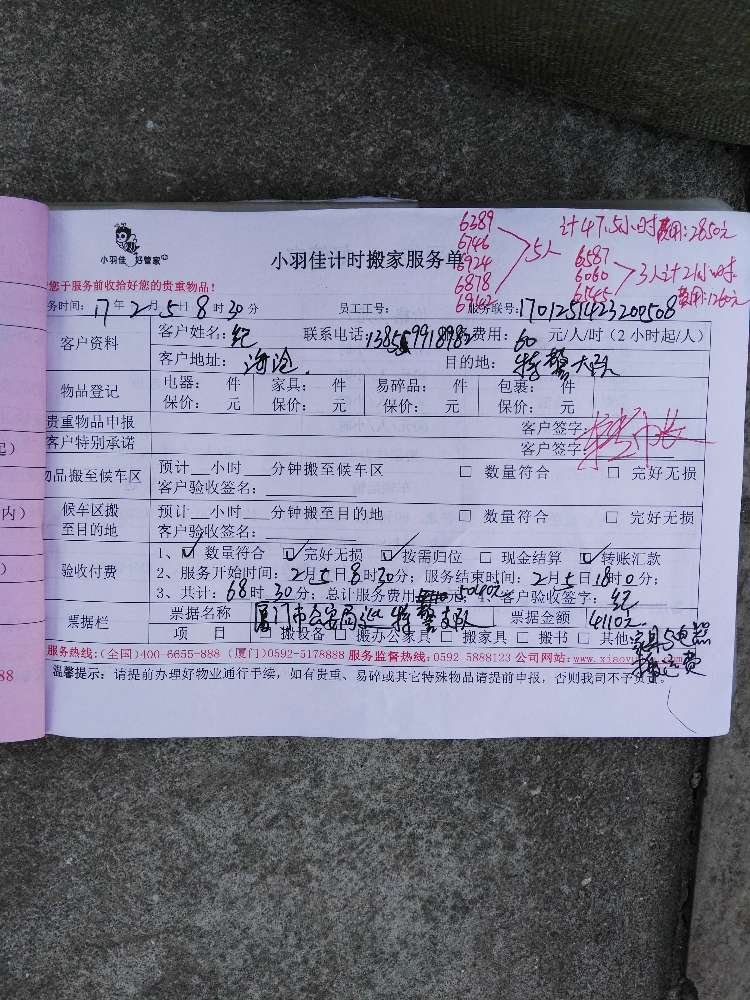 小羽佳 好管家
小羽佳计时搬家服务单
6389
6746
6924
6878
6942
5人
计47.5小时 费用:2850元
6587
6060
6545
3人计21小时
费用:1260元
您于服务前收拾好您的贵重物品!
务时间: 17年2月5日8时30分 员工工号: 服务联号:1701251423200508
客户资料 客户姓名: 纪 联系电话: 费用: 60 元/人/时(2小时起/人)
客户地址: 海沧 目的地: 特警大队
物品登记 电器: 件 家具: 件 易碎品: 件 包裹: 件
保价: 元 保价: 元 保价: 元 保价: 元
贵重物品申报 客户签字:
客户特别承诺 客户签字
物品搬至候车区 预计__小时__分钟搬至候车区 □ 数量符合 □ 完好无损
客户验收签名:
候车区搬至目的地 预计__小时__分钟搬至目的地 □ 数量符合 □ 完好无损
客户验收签名:
验收付费 1、☑ 数量符合 ☑ 完好无损 ☑ 按需归位 □ 现金结算 ☑ 转账汇款
2、服务开始时间: 2月5日8时30分; 服务结束时间: 2月5日18时0分;
3、共计: 68时30分; 总计服务费用 元; 客户验收签字: 纪
票据栏 票据名称 厦门市公安局 特警支队 票据金额 4110元
项 目 □ 搬设备 □ 搬办公家具 □ 搬家具 □ 搬书 □ 其他: 家具与电器
搬运费
服务热线:(全国)400-6655-888 (厦门)0592-5178888 服务监督热线:0592 5888123 公司网站:www.xiaoyu
温馨提示: 请提前办理好物业通行手续, 如有贵重、易碎或其它特殊物品请提前申报, 否则我司不予负责。
起)
内)
)
888